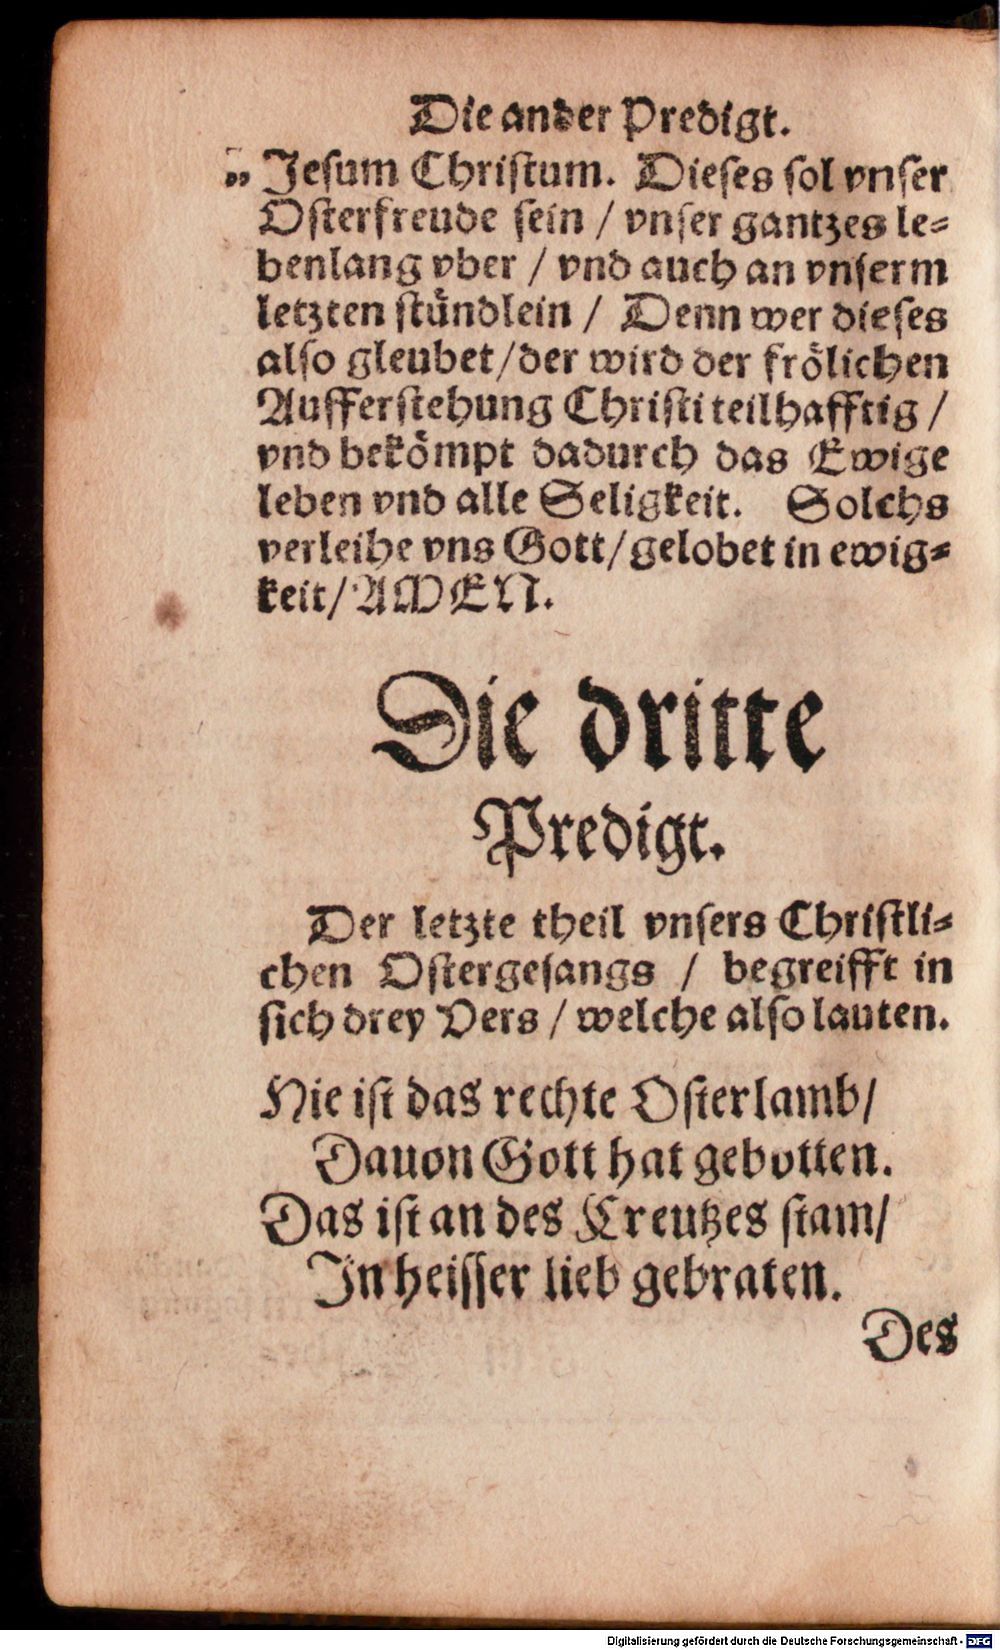 Die ander Predigt.
„ Jesum Christum. Dieses sol vnser
Osterfreude sein / vnser gantzes le⸗
benlang vber / vnd auch an vnserm
letzten stündlein / Denn wer dieses
also gleubet / der wird der frölichen
Aufferstehung Christi teilhafftig /
vnd bekömpt dadurch das Ewige
leben vnd alle Seligkeit. Solchs
verleihe vns Gott / gelobet in ewig⸗
keit / AMEN.
Die dritte
Predigt.
Der letzte theil vnsers Christli⸗
chen Ostergesangs / begreifft in
sich drey Vers / welche also lauten.
Hie ist das rechte Osterlamb /
Dauon Gott hat gebotten.
Das ist an des Creutzes stam /
In heisser lieb gebraten.
Des
Digitalisierung gefördert durch die Deutsche Forschungsgemeinschaft - DFG